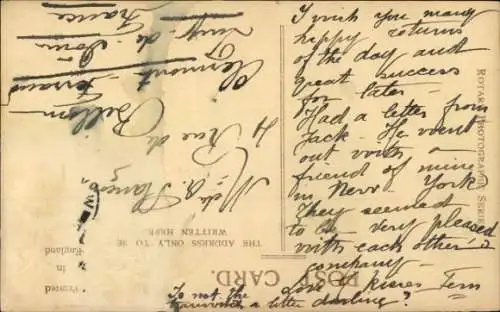 I wish you many
happy returns
of the day and
great success
for later -
Had a letter from
Jack - He went
out with a
friend of mine
in New York
They seemed
to be very pleased
with each other's
company -
Love & kisses Fern
Is not the
a letter darling?
Melle A.
4 Rue de
Clermont - Ferrand
Puy-de-Dôme
France
THE ADDRESS ONLY TO BE
WRITTEN HERE
POST CARD.
ROTARY PHOTOGRAPHIC SERIES
Printed
in
England